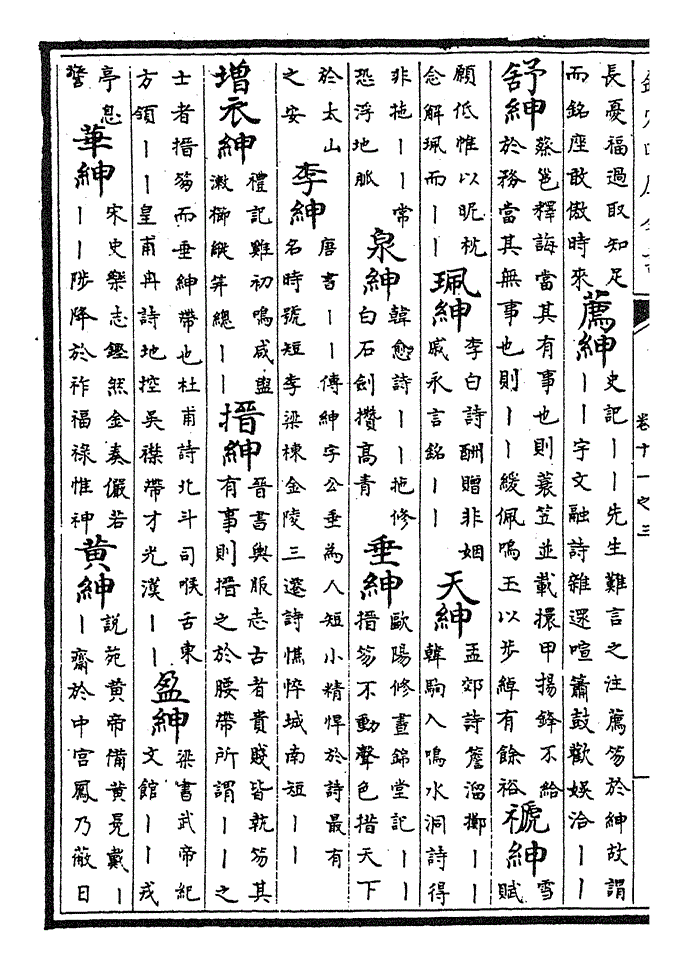 欽定四庫全書
卷十一之三
長憂福過取知足
而銘座敢傲時來
薦紳
史記丨丨先生難言之注薦笏於紳故謂
丨丨宇文融詩雜還喧簫鼓歡娛洽丨丨
舒紳
蔡邕釋誨當其有事也則蓑笠並載擐甲揚鋒不給
於務當其無事也則丨丨緩佩鳴玉以步綽有餘裕
褫紳
雪
賦
願低惟以昵枕
念解珮而丨丨
珮紳
李白詩酬贈非姻
戚永言銘丨丨
天紳
孟郊詩簷溜擲丨丨
韓駒入鳴水洞詩得
非拖丨丨常
恐浮地脈
泉紳
韓愈詩丨丨拖修
白石劍攢高青
垂紳
歐陽修晝錦堂記丨丨
搢笏不動聲色措天下
於太山
之安
李紳
唐書丨丨傳紳字公垂為人短小精悍於詩最有
名時號短李梁棟金陵三遷詩憔悴城南短丨丨
增衣紳
禮記雞初鳴咸盥
漱櫛縰笄總丨丨
搢紳
晉書輿服志古者貴賤皆執笏其
有事則搢之於腰帶所謂丨丨之
士者搢笏而垂紳帶也杜甫詩北斗司喉舌東
方領丨丨皇甫冉詩地控吳襟帶才光漢丨丨
盈紳
梁書武帝紀
文館丨丨戎
亭息
警
華紳
宋史樂志鏗然金奏儼若
丨丨陟降於祚福祿惟神
黃紳
説苑黄帝備黄冕戴丨
丨齋於中宫鳳乃蔽日